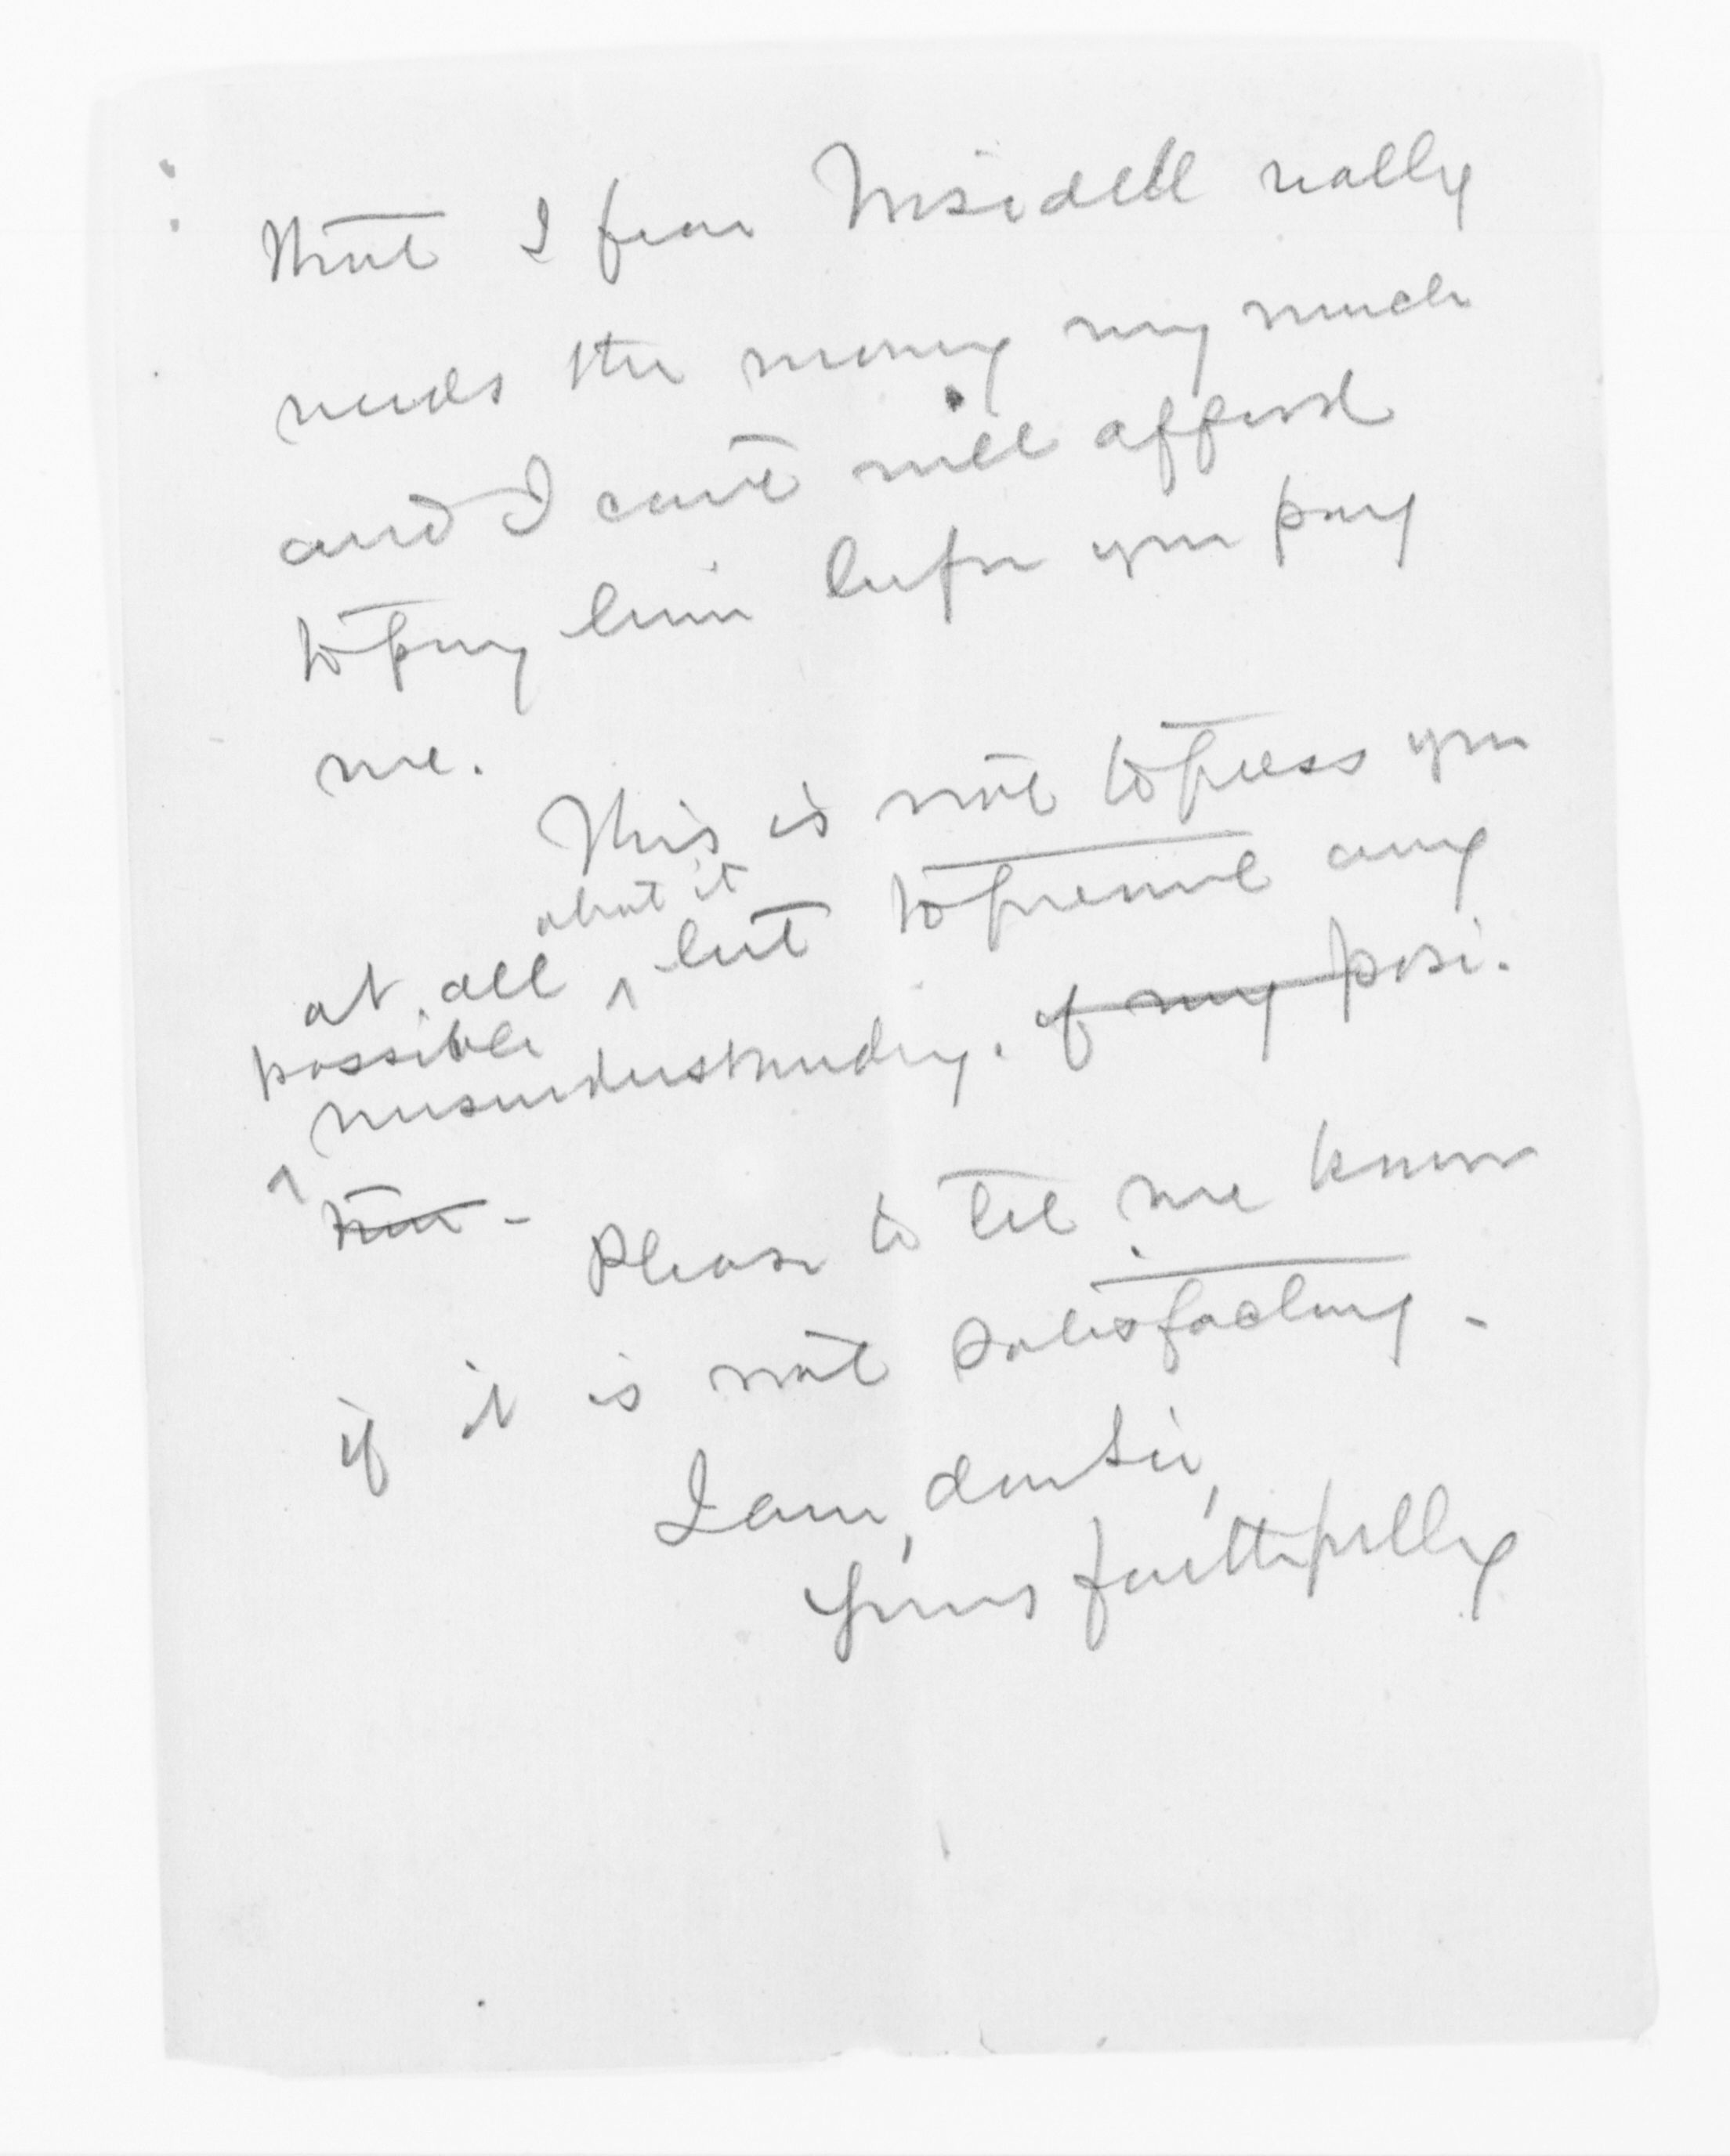 that I fear really
needs the money very much
and I can't well afford
to pay him before you pay
me.
This is not to press you
about it
at all ^ but to prevent any
possible
misunderstanding. of my posi-
^
tion -
Please to let me know
if it is not satisfactory -
I am, dear Sir,
Yours faithfully